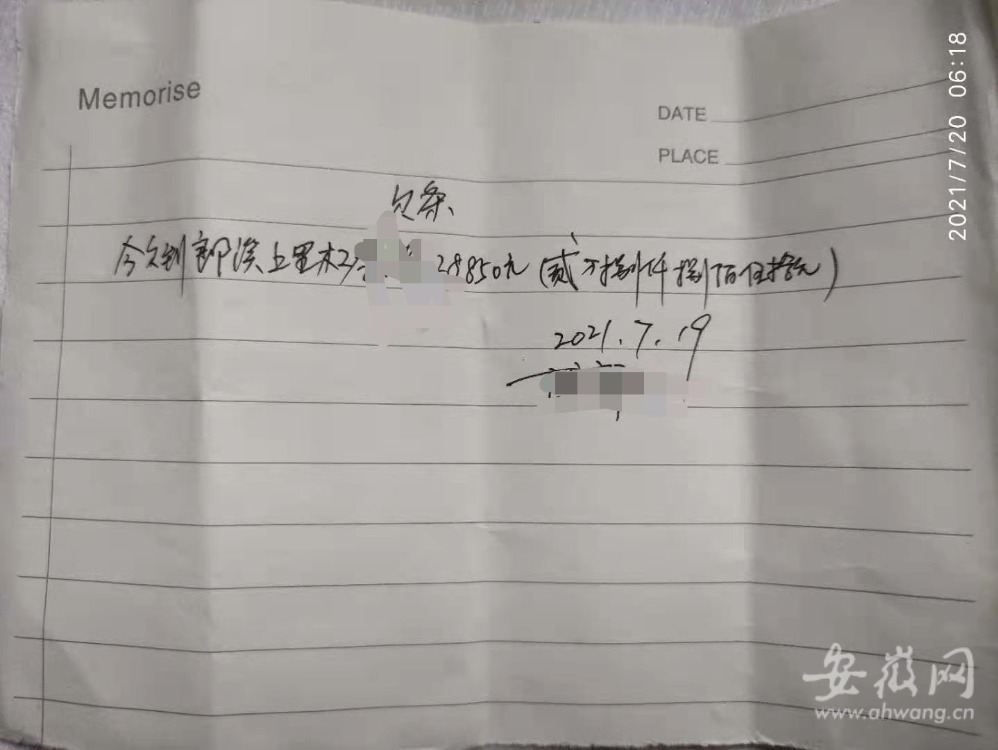 Memorise
DATE
PLACE
2021/7/20 06:18
欠条
今欠到郎溪上里木 28850元(贰万捌仟捌佰伍拾元)
2021.7.19
安徽网
www.ahwang.cn